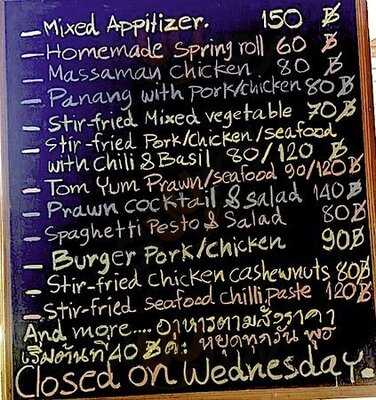 - Mixed Appitizer. 150 ฿
- Homemade Spring roll 60 ฿
- Massaman Chicken 80 ฿
- Panang with Pork/Chicken 80 ฿
- Stir-fried Mixed vegetable 70 ฿
- Stir-fried Pork/Chicken/seafood
with Chili & Basil 80/120 ฿
- Tom Yum Prawn/seafood 90/120 ฿
- Prawn cocktail & salad 140 ฿
- Spaghetti Pesto & Salad 80 ฿
- Burger Pork/Chicken 90 ฿
- Stir-fried Chicken cashewnuts 80 ฿
- Stir-fried seafood Chilli paste 120 ฿
And more.... อาหารตามสั่งราคา
เริ่มต้นที่ 40 ฿ ค่ะ หยุดทุกวัน พุธ
Closed on Wednesday.